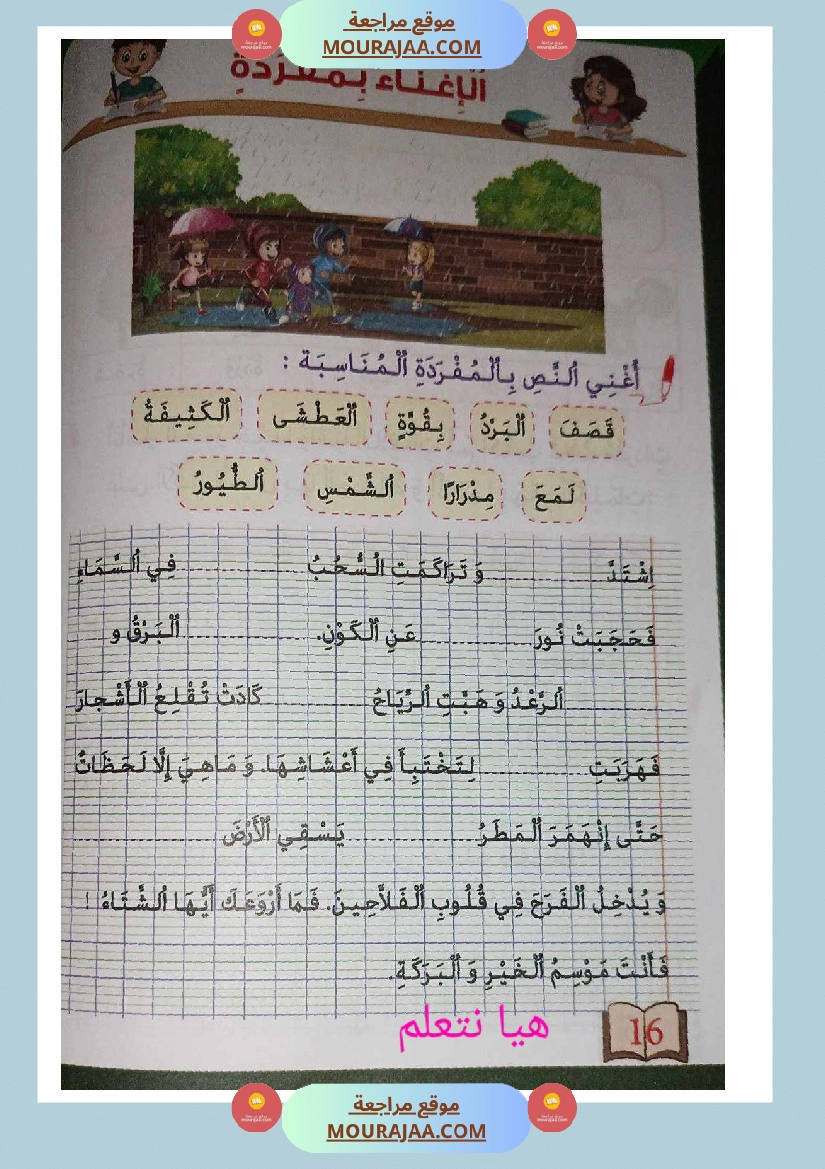 موقع مراجعة
MOURAJAA.COM
اَلْإِغْنَاءُ بِمُفْرَدَةٍ
أُغْنِي ٱلنَّصِ بِٱلْمُفْرَدَةِ ٱلْمُنَاسِبَة :
قَصَفَ ٱلْبَرْدُ بِقُوَّةٍ ٱلْعَطْشَى ٱلْكَثِيفَةُ
لَمَعَ مِدْرَارًا ٱلشَّمْسِ ٱلطُّيُورُ
اِشْتَدَّ ............ وَ تَرَاكَمَتِ ٱلْسُّحُبُ ............ فِي ٱلسَّمَاءِ
فَحَجَبَتْ نُورَ ............ عَنِ ٱلْكَوْنِ. ............ ٱلْبَرْقُ و
............ ٱلرَّعْدُ وَ هَبَّتِ ٱلرِّيَاحُ ............ كَادَتْ تُقْلِعُ ٱلْأَشْجارَ
فَهَرَبَتِ ............ لِتَخْتَبِأَ فِي أَعْشَاشِهَا. وَ مَاهِيَ إِلَّا لَحَظَاتٌ
حَتَّى إِنْهَمَرَ ٱلْمَطَرُ ............ يَسْقِي ٱلْأَرْضَ ............
وَ يُدْخِلُ ٱلْفَرَحَ فِي قُلُوبِ ٱلْفَلاَّحِينَ. فَمَا أَرْوَعَكَ أَيُّهَا ٱلشِّتَاءُ !
فَأَنْتَ مَوْسِمُ ٱلْخَيْرِ وَ ٱلْبَرَكَةِ.
هيا نتعلم
16
موقع مراجعة
MOURAJAA.COM